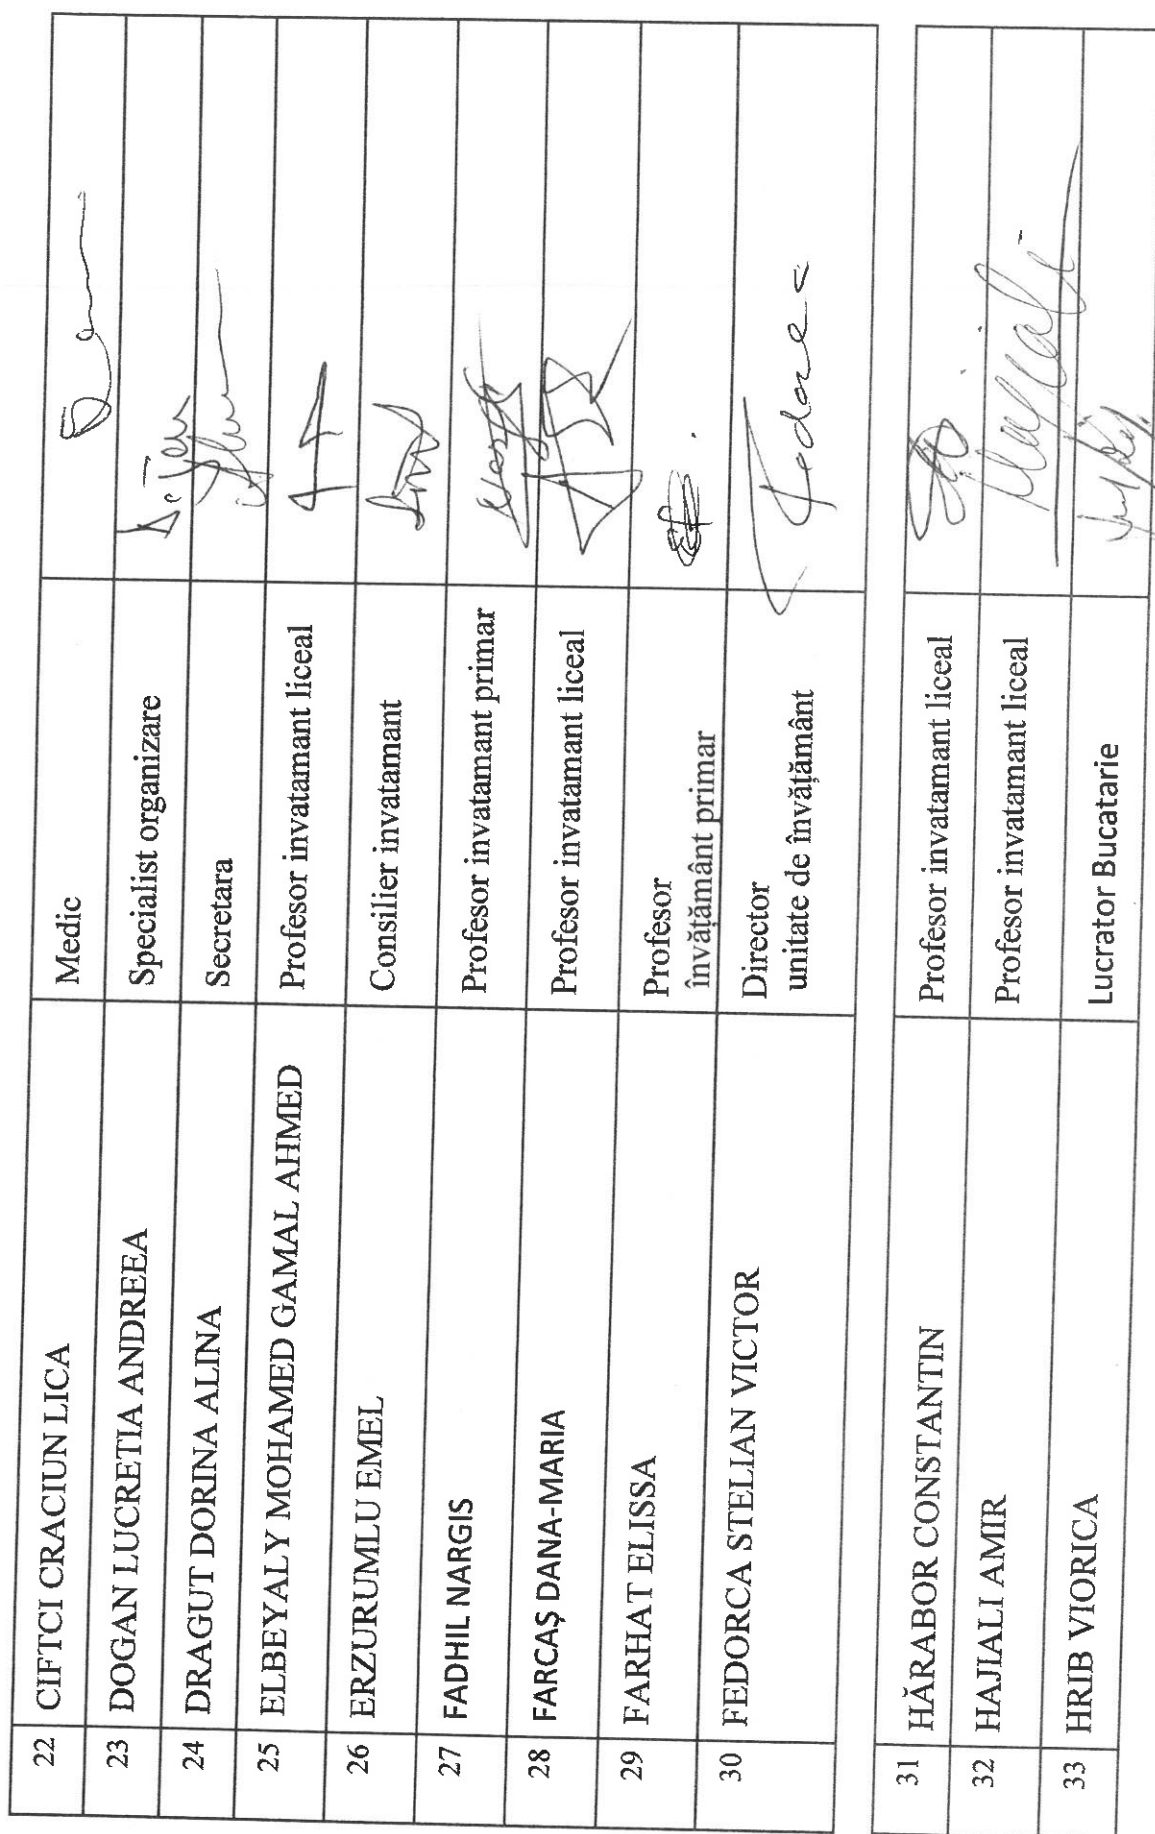 22 CIFTCI CRACIUN LICA Medic
23 DOGAN LUCRETIA ANDREEA Specialist organizare
24 DRAGUT DORINA ALINA Secretara
25 ELBEYALY MOHAMED GAMAL AHMED Profesor invatamant liceal
26 ERZURUMLU EMEL Consilier invatamant
27 FADHIL NARGIS Profesor invatamant primar
28 FARCAȘ DANA-MARIA Profesor invatamant liceal
29 FARHAT ELISSA Profesor
învățământ primar
30 FEDORCA STELIAN VICTOR Director
unitate de învățământ
31 HĂRABOR CONSTANTIN Profesor invatamant liceal
32 HAJIALI AMIR Profesor invatamant liceal
33 HRIB VIORICA Lucrator Bucatarie